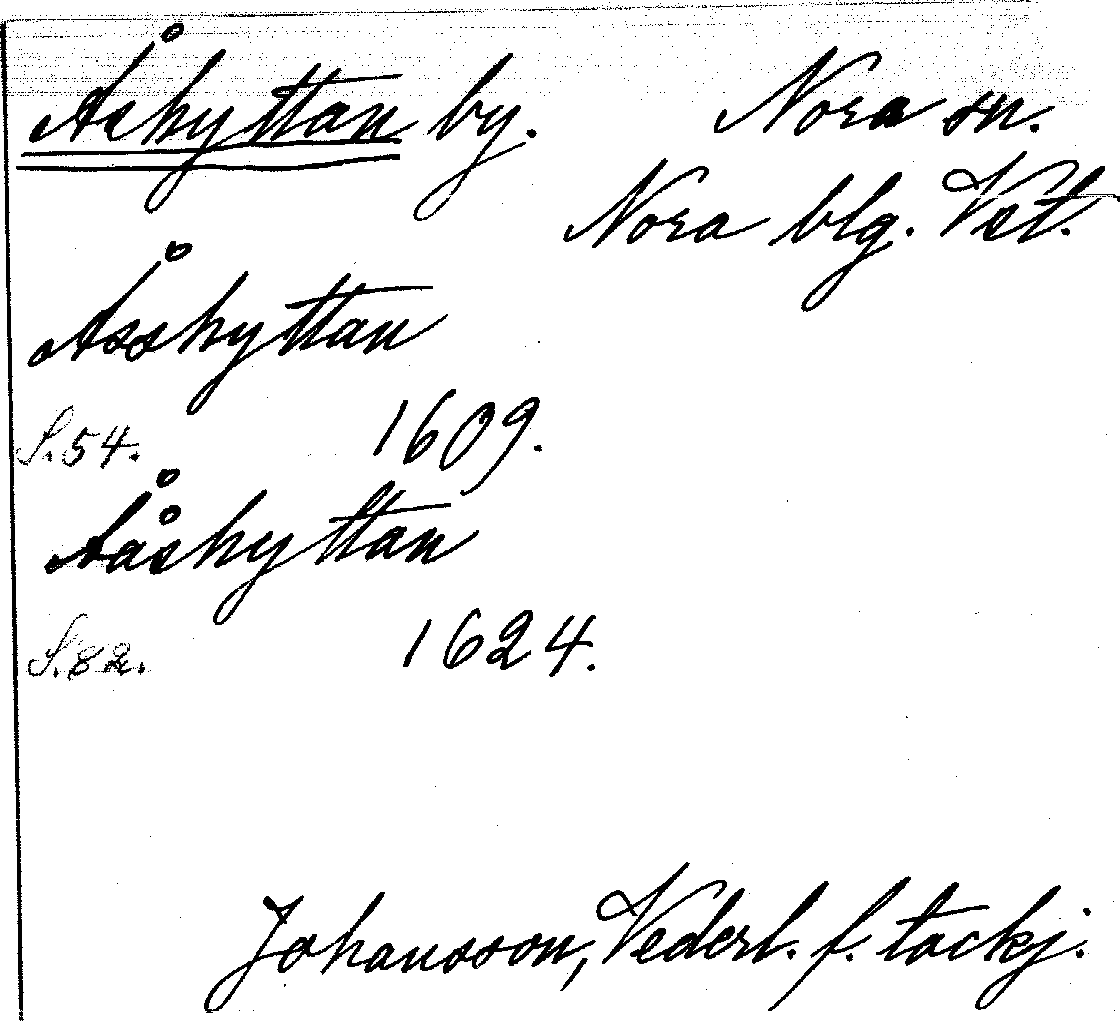 Åshyttan by. Nora sn.
Nora blg. Vst.
Åsshyttan
S.54. 1609.
Ååshyttan
S.82. 1624.
Johansson, Vederl. f. tackj.